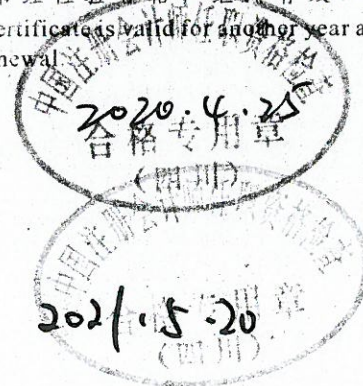 ertificate is valid for another year a
newal.
中国注册会计师任职资格检查
2020.4.25
合格专用章
(四川)
中国注册会计师任职资格检查
2021.5.20
章
(四川)